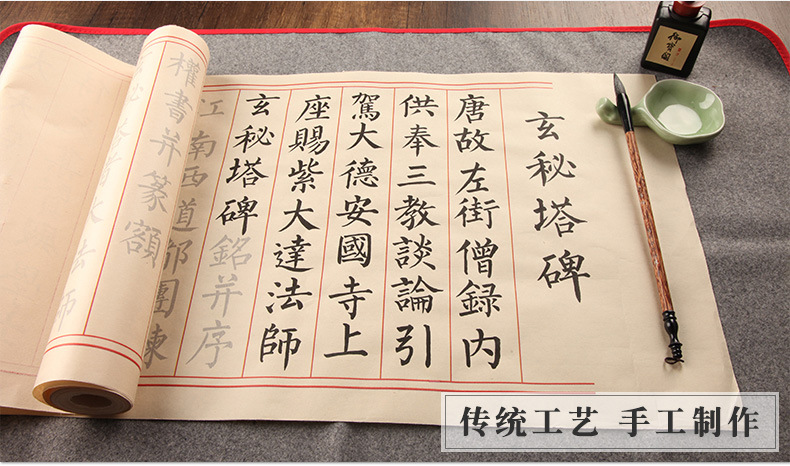 玄秘塔碑
唐故左街僧録内
供奉三教談論引
駕大德安國寺上
座賜紫大達法師
玄秘塔碑銘并序
江南西道都團練
權書并篆額
法師
传统工艺 手工制作